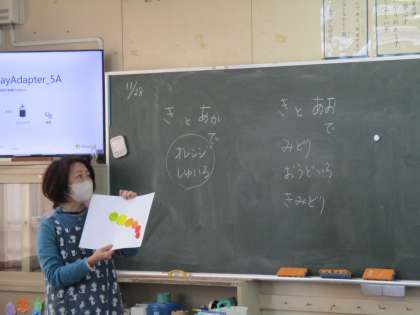 ayAdapter_5A
11/28
きとあか
で
オレンジ
しゅいろ
きとあお
で
みどり
おうどいろ
きみどり